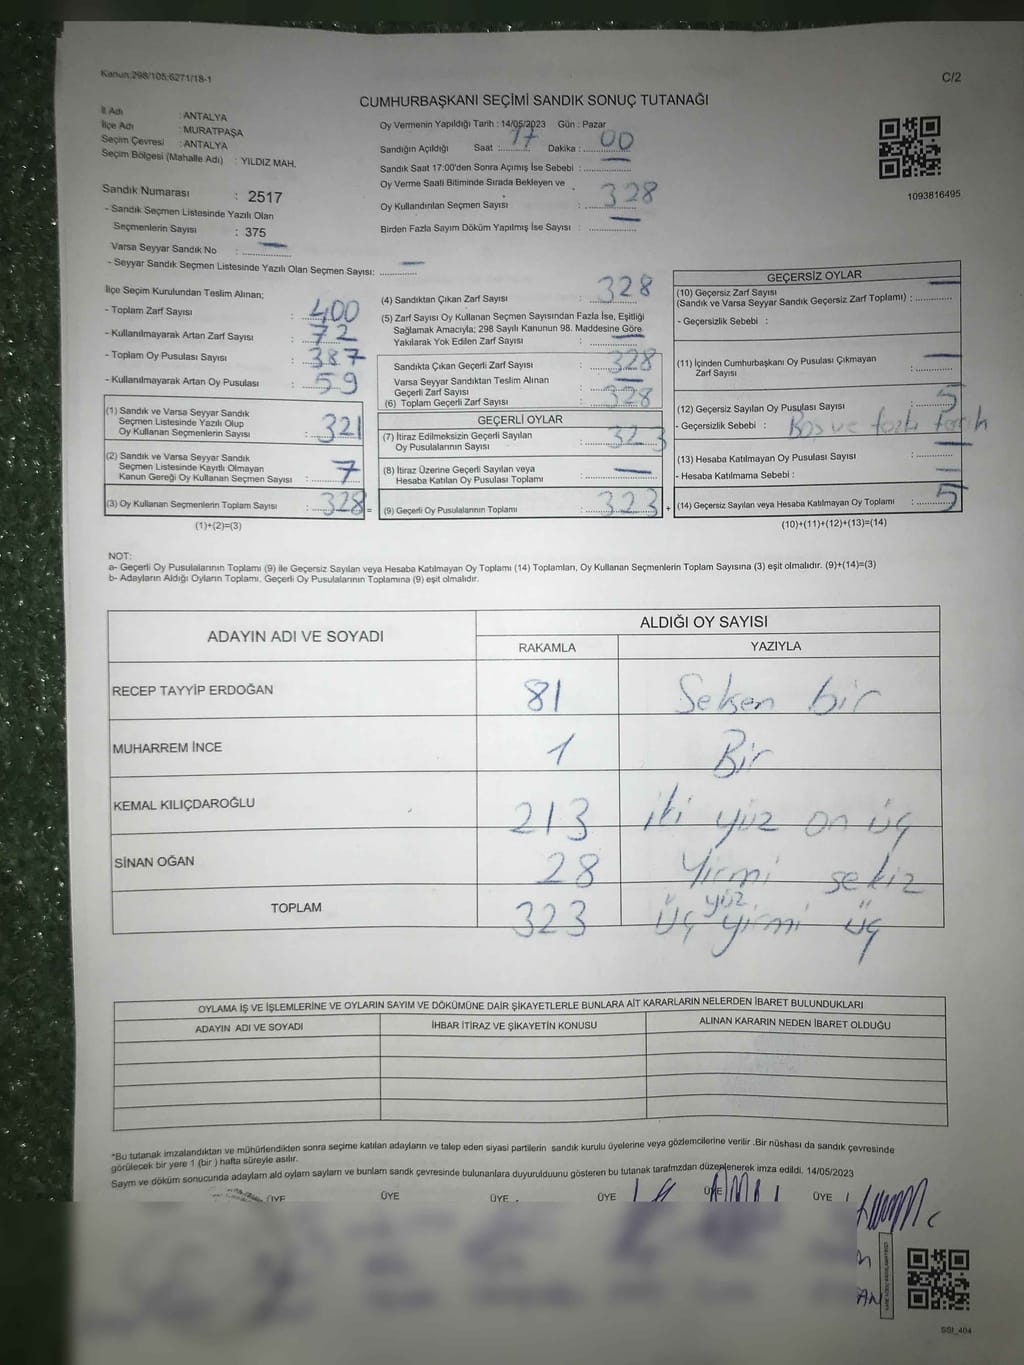 Kanun:298/105;6271/18-1
C/2
CUMHURBAŞKANI SEÇİMİ SANDIK SONUÇ TUTANAĞI
İl Adı : ANTALYA
İlçe Adı : MURATPAŞA
Seçim Çevresi : ANTALYA
Seçim Bölgesi (Mahalle Adı) : YILDIZ MAH.
Sandık Numarası : 2517
- Sandık Seçmen Listesinde Yazılı Olan
Seçmenlerin Sayısı : 375
Varsa Seyyar Sandık No : —
- Seyyar Sandık Seçmen Listesinde Yazılı Olan Seçmen Sayısı: —
Oy Vermenin Yapıldığı Tarih : 14/05/2023 Gün : Pazar
Sandığın Açıldığı Saat : 17 Dakika : 00
Sandık Saat 17:00'den Sonra Açımış İse Sebebi : —
Oy Verme Saati Bitiminde Sırada Bekleyen ve
Oy Kullandırılan Seçmen Sayısı : 328
Birden Fazla Sayım Döküm Yapılmış İse Sayısı : —
1093816495
İlçe Seçim Kurulundan Teslim Alınan;
- Toplam Zarf Sayısı : 400
- Kullanılmayarak Artan Zarf Sayısı : 72
- Toplam Oy Pusulası Sayısı : 387
- Kullanılmayarak Artan Oy Pusulası : 59
(1) Sandık ve Varsa Seyyar Sandık
Seçmen Listesinde Yazılı Olup
Oy Kullanan Seçmenlerin Sayısı : 321
(2) Sandık ve Varsa Seyyar Sandık
Seçmen Listesinde Kayıtlı Olmayan
Kanun Gereği Oy Kullanan Seçmen Sayısı : 7
(3) Oy Kullanan Seçmenlerin Toplam Sayısı : 328 =
(1)+(2)=(3)
(4) Sandıktan Çıkan Zarf Sayısı : 328
(5) Zarf Sayısı Oy Kullanan Seçmen Sayısından Fazla İse, Eşitliği
Sağlamak Amacıyla; 298 Sayılı Kanunun 98. Maddesine Göre
Yakılarak Yok Edilen Zarf Sayısı : —
Sandıkta Çıkan Geçerli Zarf Sayısı : 328
Varsa Seyyar Sandıktan Teslim Alınan
Geçerli Zarf Sayısı : —
(6) Toplam Geçerli Zarf Sayısı : 328
GEÇERLİ OYLAR
(7) İtiraz Edilmeksizin Geçerli Sayılan
Oy Pusulasının Sayısı : 323
(8) İtiraz Üzerine Geçerli Sayılan veya
Hesaba Katılan Oy Pusulası Toplamı : —
(9) Geçerli Oy Pusulalarının Toplamı : 323 +
GEÇERSİZ OYLAR
(10) Geçersiz Zarf Sayısı
(Sandık ve Varsa Seyyar Sandık Geçersiz Zarf Toplamı) : —
- Geçersizlik Sebebi :
(11) İçinden Cumhurbaşkanı Oy Pusulası Çıkmayan
Zarf Sayısı : —
(12) Geçersiz Sayılan Oy Pusulası Sayısı : 5
- Geçersizlik Sebebi : Boş ve fazla tercih
(13) Hesaba Katılmayan Oy Pusulası Sayısı : —
- Hesaba Katılmama Sebebi : —
(14) Geçersiz Sayılan veya Hesaba Katılmayan Oy Toplamı : 5
(10)+(11)+(12)+(13)=(14)
NOT:
a- Geçerli Oy Pusulalarının Toplamı (9) ile Geçersiz Sayılan veya Hesaba Katılmayan Oy Toplamı (14) Toplamları, Oy Kullanan Seçmenlerin Toplam Sayısına (3) eşit olmalıdır. (9)+(14)=(3)
b- Adayların Aldığı Oyların Toplamı, Geçerli Oy Pusulalarının Toplamına (9) eşit olmalıdır.
ADAYIN ADI VE SOYADI
ALDIĞI OY SAYISI
RAKAMLA YAZIYLA
RECEP TAYYİP ERDOĞAN 81 Seksen bir
MUHARREM İNCE 1 Bir
KEMAL KILIÇDAROĞLU 213 iki yüz on üç
SİNAN OĞAN 28 Yirmi sekiz
TOPLAM 323 üç yüz yirmi üç
OYLAMA İŞ VE İŞLEMLERİNE VE OYLARIN SAYIM VE DÖKÜMÜNE DAİR ŞİKAYETLERLE BUNLARA AİT KARARLARIN NELERDEN İBARET BULUNDUKLARI
ADAYIN ADI VE SOYADI İHBAR İTİRAZ VE ŞİKAYETİN KONUSU ALINAN KARARIN NEDEN İBARET OLDUĞU
*Bu tutanak imzalandıktan ve mühürlendikten sonra seçime katılan adayların ve talep eden siyasi partilerin sandık kurulu üyelerine veya gözlemcilerine verilir .Bir nüshası da sandık çevresinde
görülecek bir yere 1 (bir ) hafta süreyle asılır.
Sayım ve döküm sonucunda adaylam ald oylam saylam ve bunlam sandk çevresinde bulunanlara duyurulduunu gösteren bu tutanak tarafmzdan düzenlenerek imza edildi. 14/05/2023
ÜYE ÜYE ÜYE ÜYE ÜYE ÜYE
SSI_404